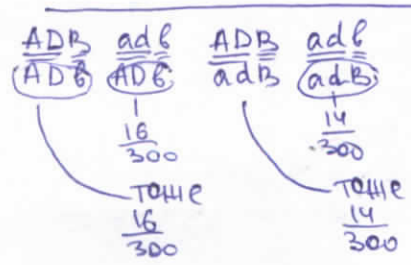 ADB adb ADB adb
ADb ADb adB adB
16/300 14/300
тоже тоже
16/300 14/300